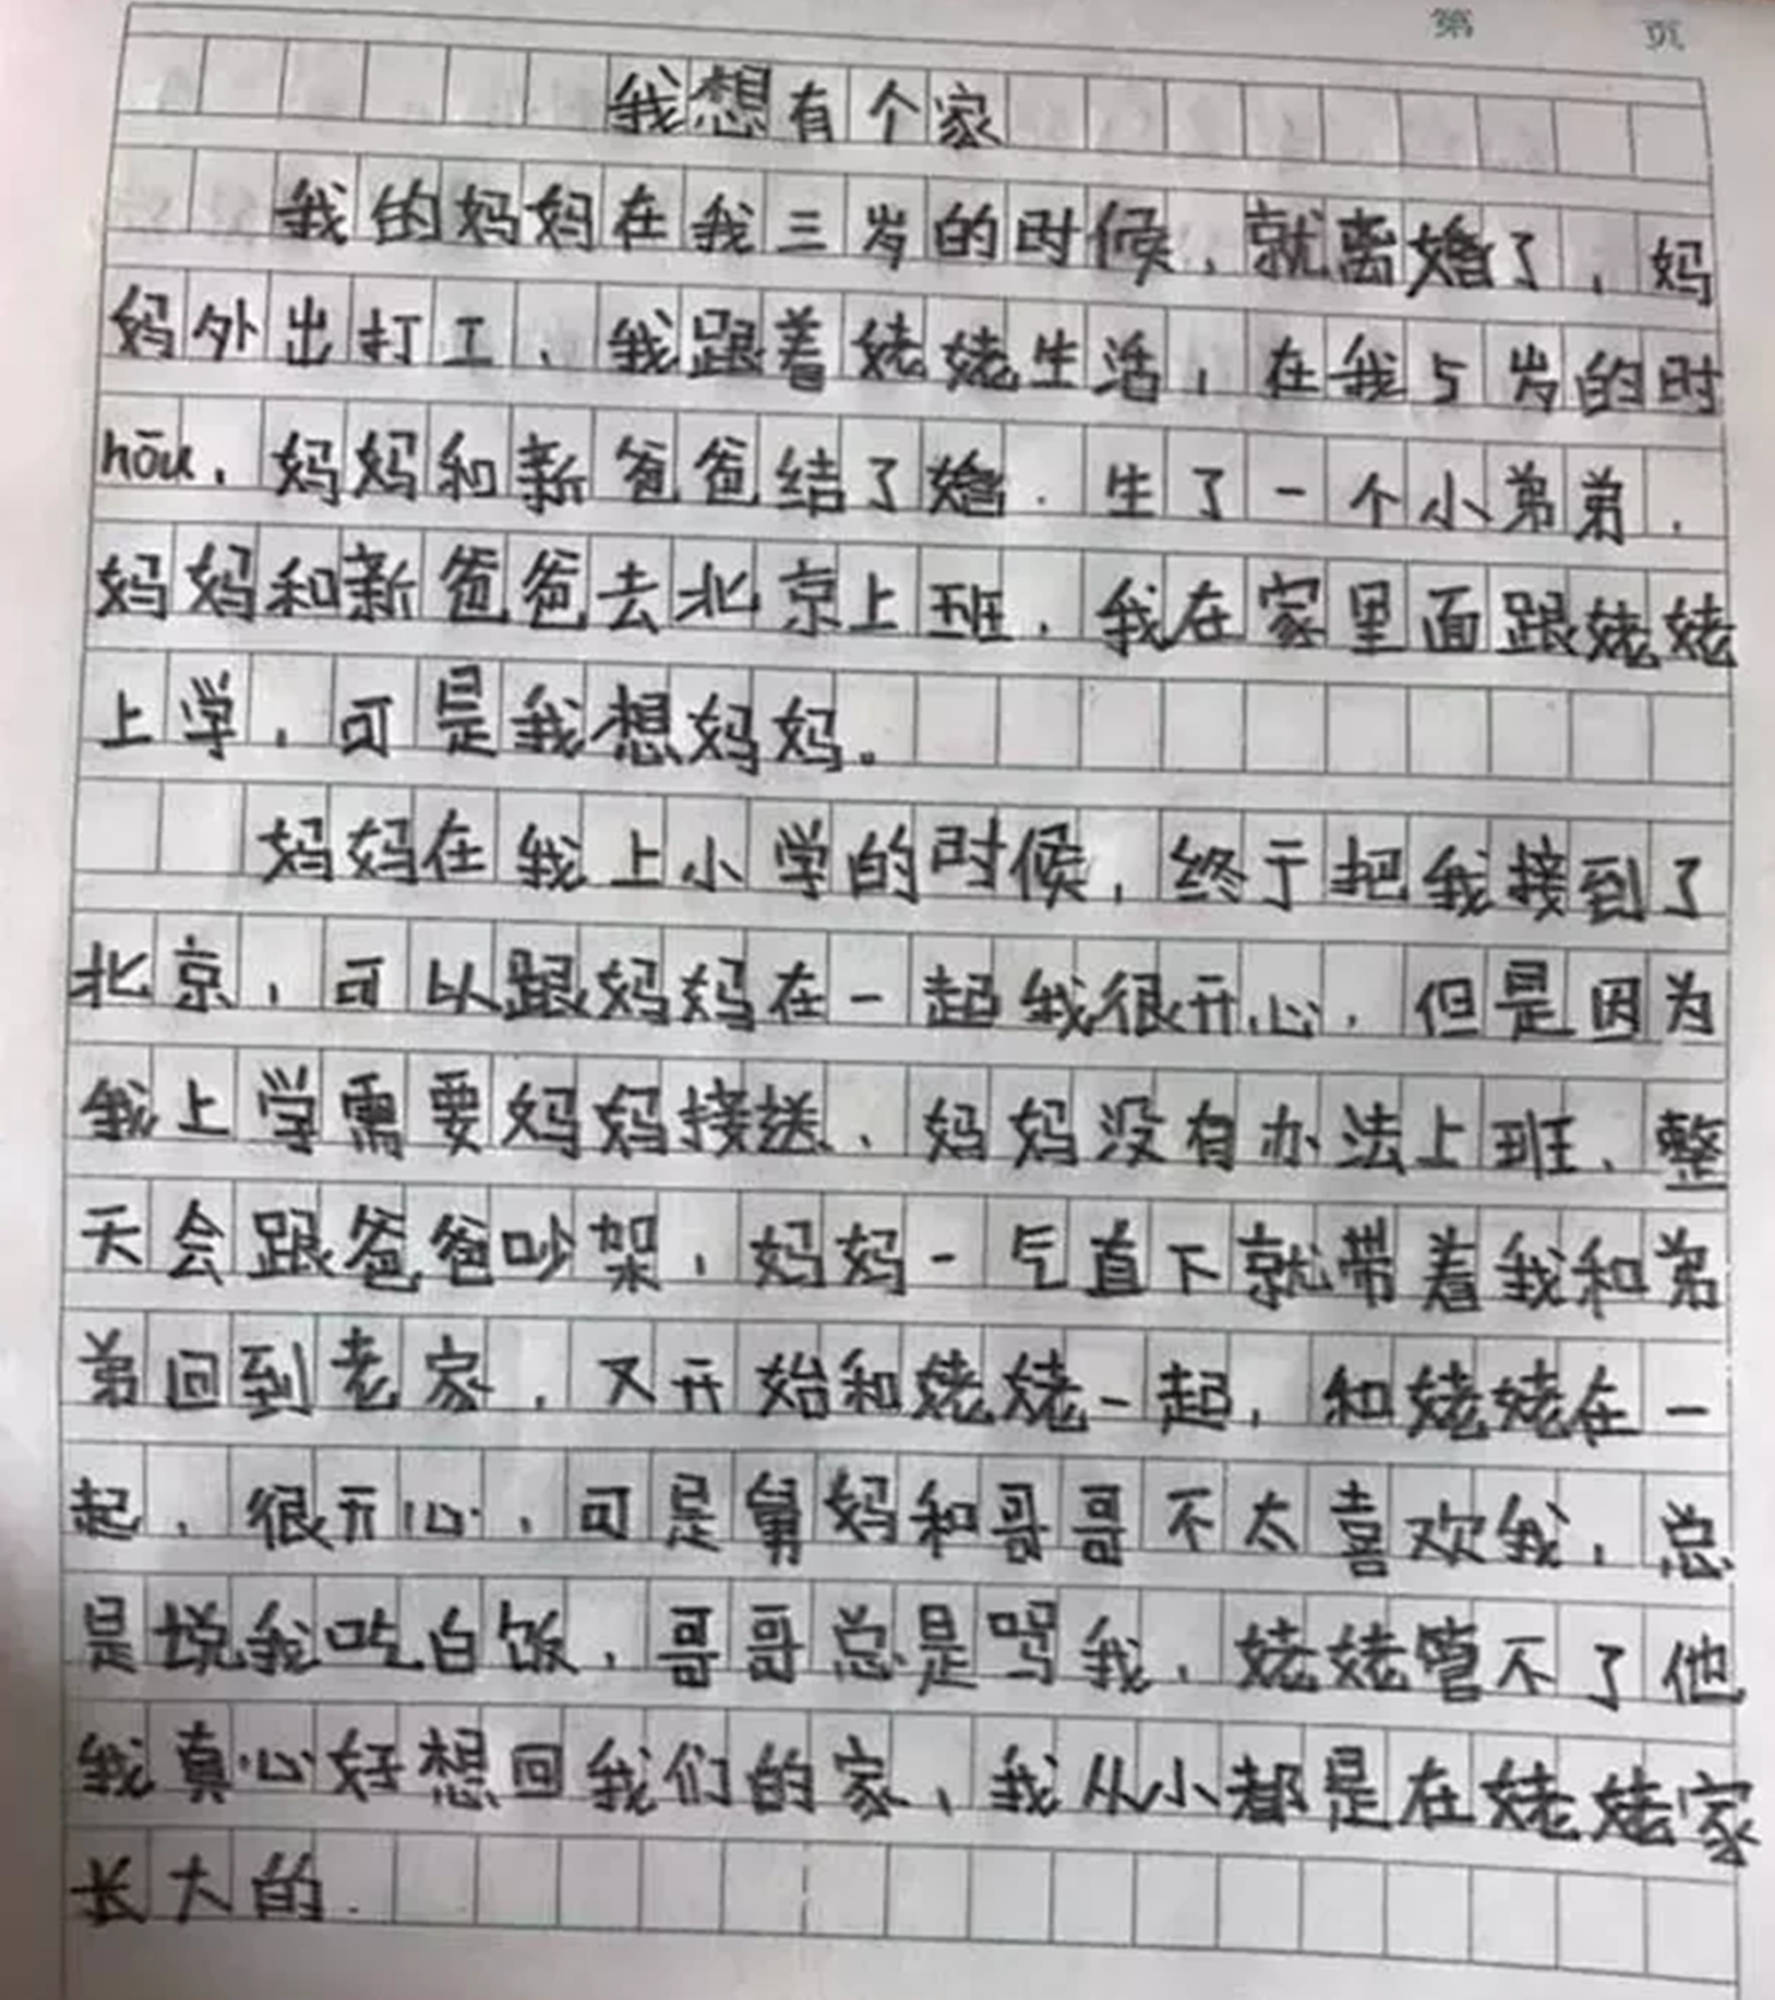 第 页
我想有个家
我的妈妈在我三岁的时候,就离婚了,妈
妈外出打工、我跟着姥姥生活,在我5岁的时
hōu,妈妈和新爸爸结了婚.生了一个小弟弟,
妈妈和新爸爸去北京上班.我在家里面跟姥姥
上学,可是我想妈妈。
妈妈在我上小学的时候,终于把我接到了
北京,可以跟妈妈在一起我很开心,但是因为
我上学需要妈妈接送、妈妈没有办法上班、整
天会跟爸爸吵架,妈妈一气直下就带着我和弟
弟回到老家,又开始和姥姥一起,和姥姥在一
起.很开心,可是舅妈和哥哥不太喜欢我,总
是说我吃白饭,哥哥总是骂我,姥姥管不了他
我真心好想回我们的家,我从小都是在姥姥家
长大的.